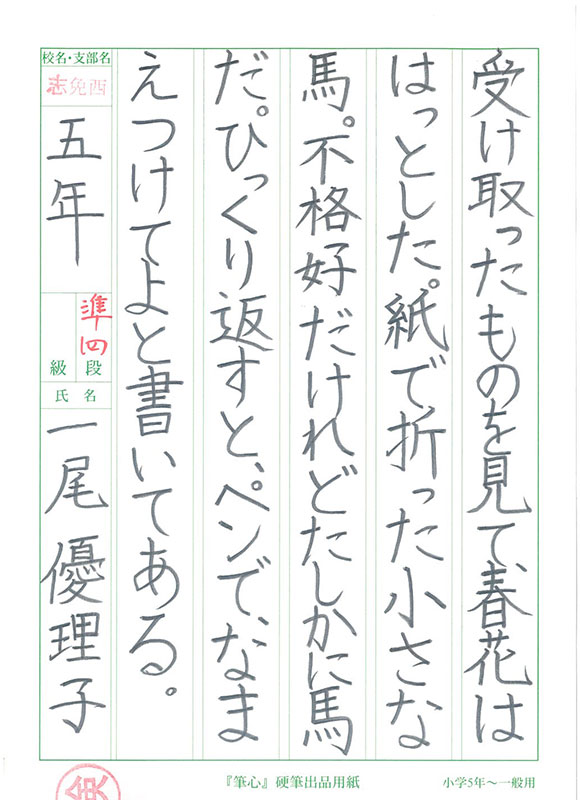 受け取ったものを見て、春花は
はっとした。紙で折った小さな
馬。不格好だけれどたしかに馬
だ。ひっくり返すと、ペンで、なま
えつけてよと書いてある。
校名・支部名
志免西
五年
準四
段
級
氏名
一尾優理子
『筆心』硬筆出品用紙
小学5年〜一般用